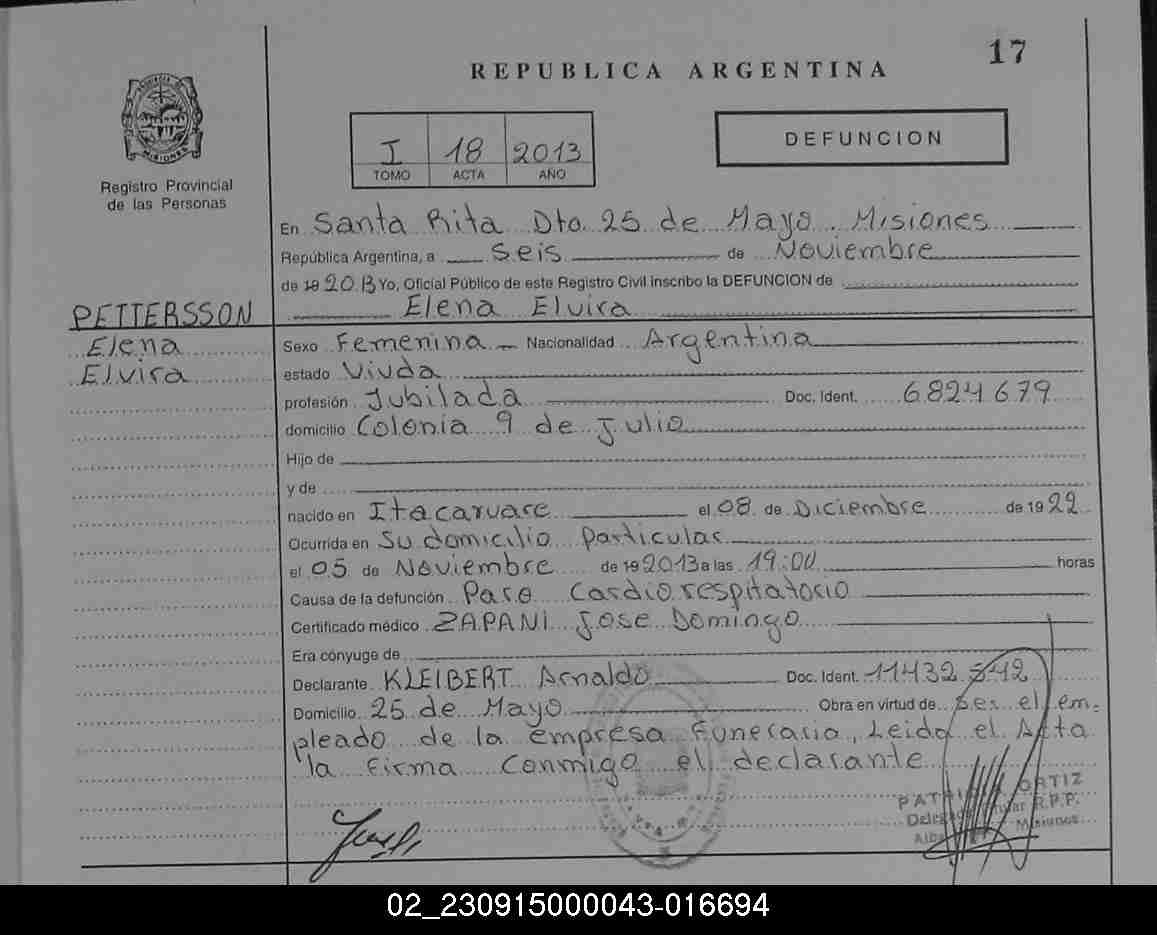 17
REPUBLICA ARGENTINA
PROVINCIA DE
MISIONES
Registro Provincial
de las Personas
I 18 2013
TOMO ACTA AÑO
DEFUNCION
En Santa Rita Dto. 25 de Mayo. Misiones
República Argentina, a Seis de Noviembre
de 19 2013 Yo, Oficial Público de este Registro Civil inscribo la DEFUNCION de
PETTERSSON Elena Elvira
Elena
Elvira
Sexo Femenina Nacionalidad Argentina
estado Viuda
profesión Jubilada Doc. Ident. 6824679
domicilio Colonia 9 de Julio
Hijo de
y de
nacido en Itacaruare el 08 de Diciembre de 1922
Ocurrida en Su domicilio particular
el 05 de Noviembre de 19 2013 a las 19:00 horas
Causa de la defunción Paro Cardiorespitatorio
Certificado médico ZAPANI Jose Domingo
Era cónyuge de
Declarante KLEIBERT Arnaldo Doc. Ident. 11432.542
Domicilio 25 de Mayo Obra en virtud de Ser el em-
pleado de la empresa Funeraria, Leida el Acta
la firma conmigo el declarante
ORTIZ
R.P.P.
Misiones
02_230915000043-016694